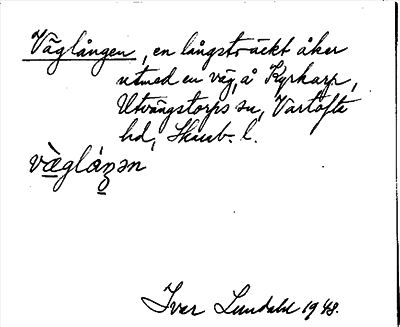 Väglången, en långsträckt åker
utmed en väg, å Kyrkarp,
Utvängstorps sn, Vartofte
hd, Skarab. l.
vägláŋən
Ivar Lundahl 1948.